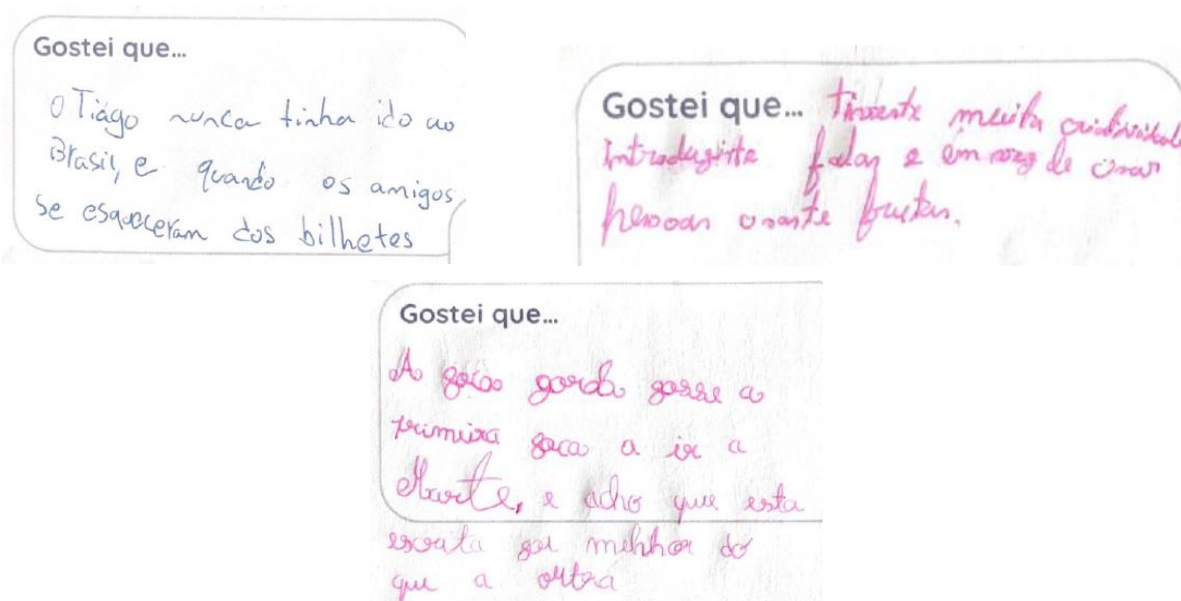 Gostei que...
O Tiago nunca tinha ido ao
Brasil, e quando os amigos
se esqueceram dos bilhetes
Gostei que... Tiveste muita criatividade
Introduziste falas e em vez de usar
pessoas usaste frutas.
Gostei que...
A foca gorda fosse a
primeira foca a ir a
Marte, e acho que esta
escrita foi melhor do
que a outra